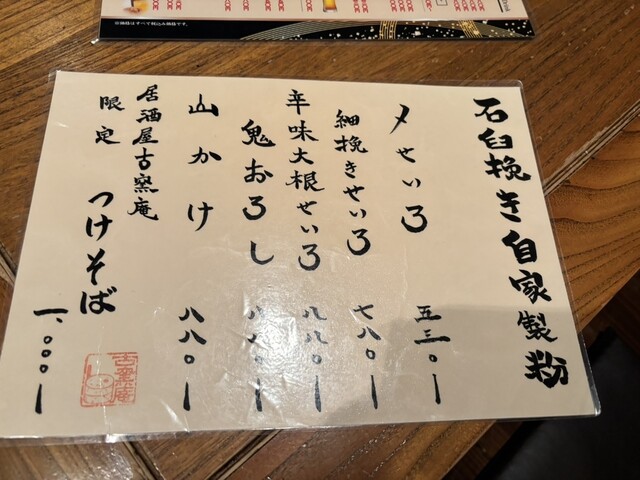 石臼挽き自家製粉
〆せいろ 五三〇ー
細挽きせいろ 七八〇ー
辛味大根せいろ 八八〇ー
鬼おろし 八八〇ー
山かけ 八八〇ー
居酒屋古窯庵
限定 つけそば 一、〇〇〇ー
古窯庵
※価格はすべて税込み価格です。